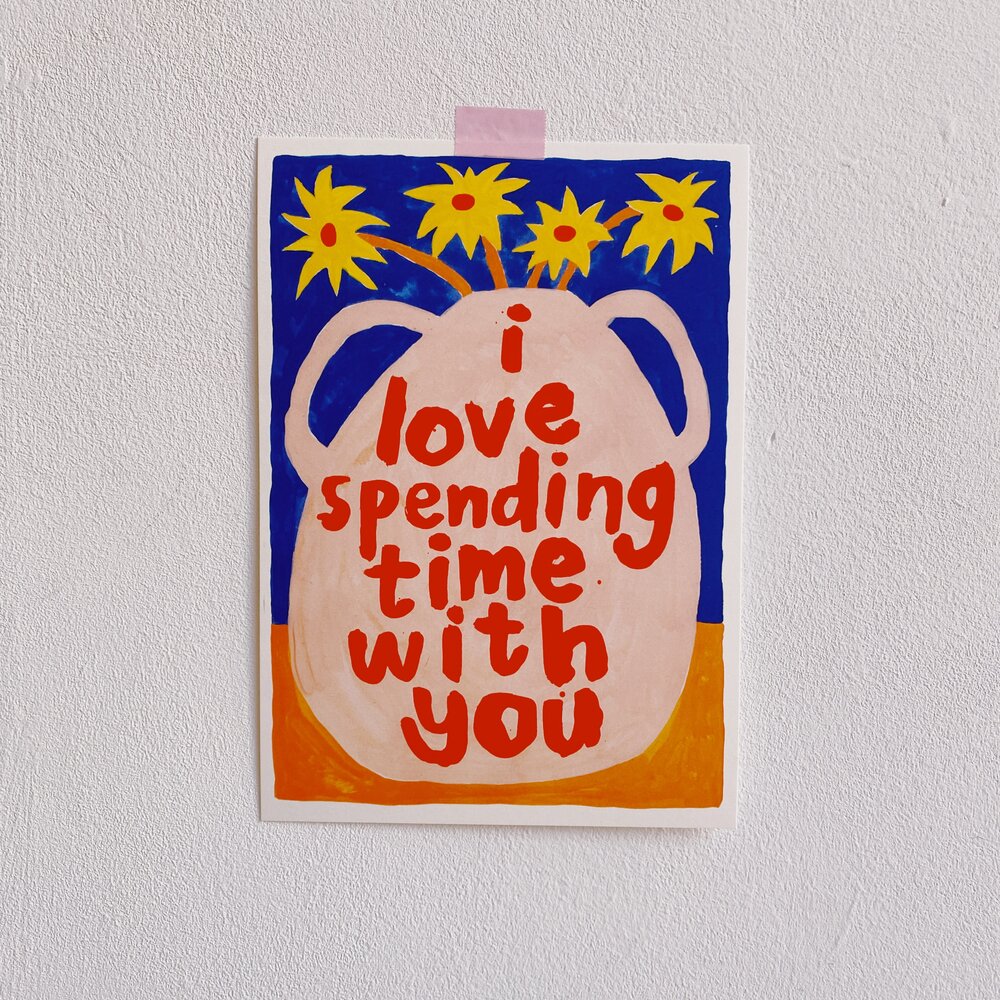 i
love
spending
time
with
you